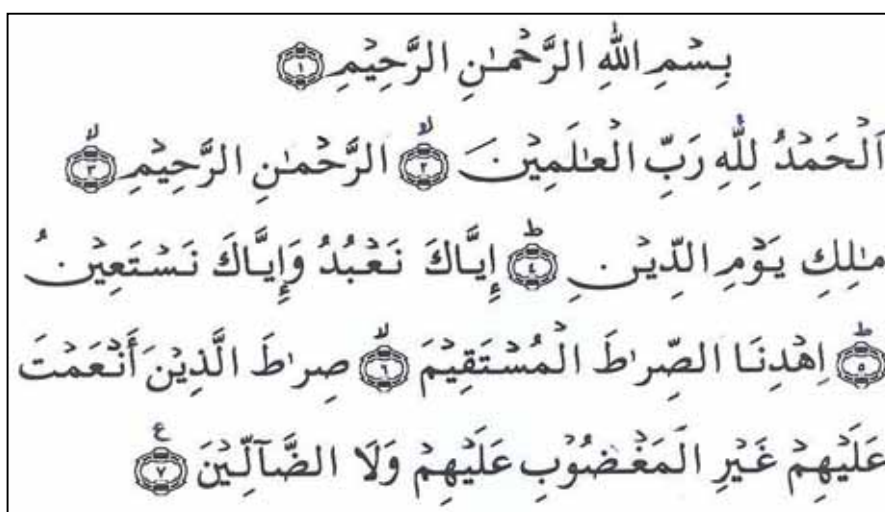 بِسْمِ اللهِ الرَّحْمٰنِ الرَّحِيْمِ ﴿١﴾
اَلْحَمْدُ لِلّٰهِ رَبِّ الْعٰلَمِيْنَ ﴿٢﴾ۙ الرَّحْمٰنِ الرَّحِيْمِ ﴿٣﴾ۙ
مٰلِكِ يَوْمِ الدِّيْنِ ﴿٤﴾ؕ إِيَّاكَ نَعْبُدُ وَإِيَّاكَ نَسْتَعِيْنُ
﴿٥﴾ؕ اِهْدِنَا الصِّرٰطَ الْمُسْتَقِيْمَ ﴿٦﴾ۙ صِرٰطَ الَّذِيْنَ أَنْعَمْتَ
عَلَيْهِمْ غَيْرِ الْمَغْضُوْبِ عَلَيْهِمْ وَلَا الضَّآلِّيْنَ ﴿٧﴾ع